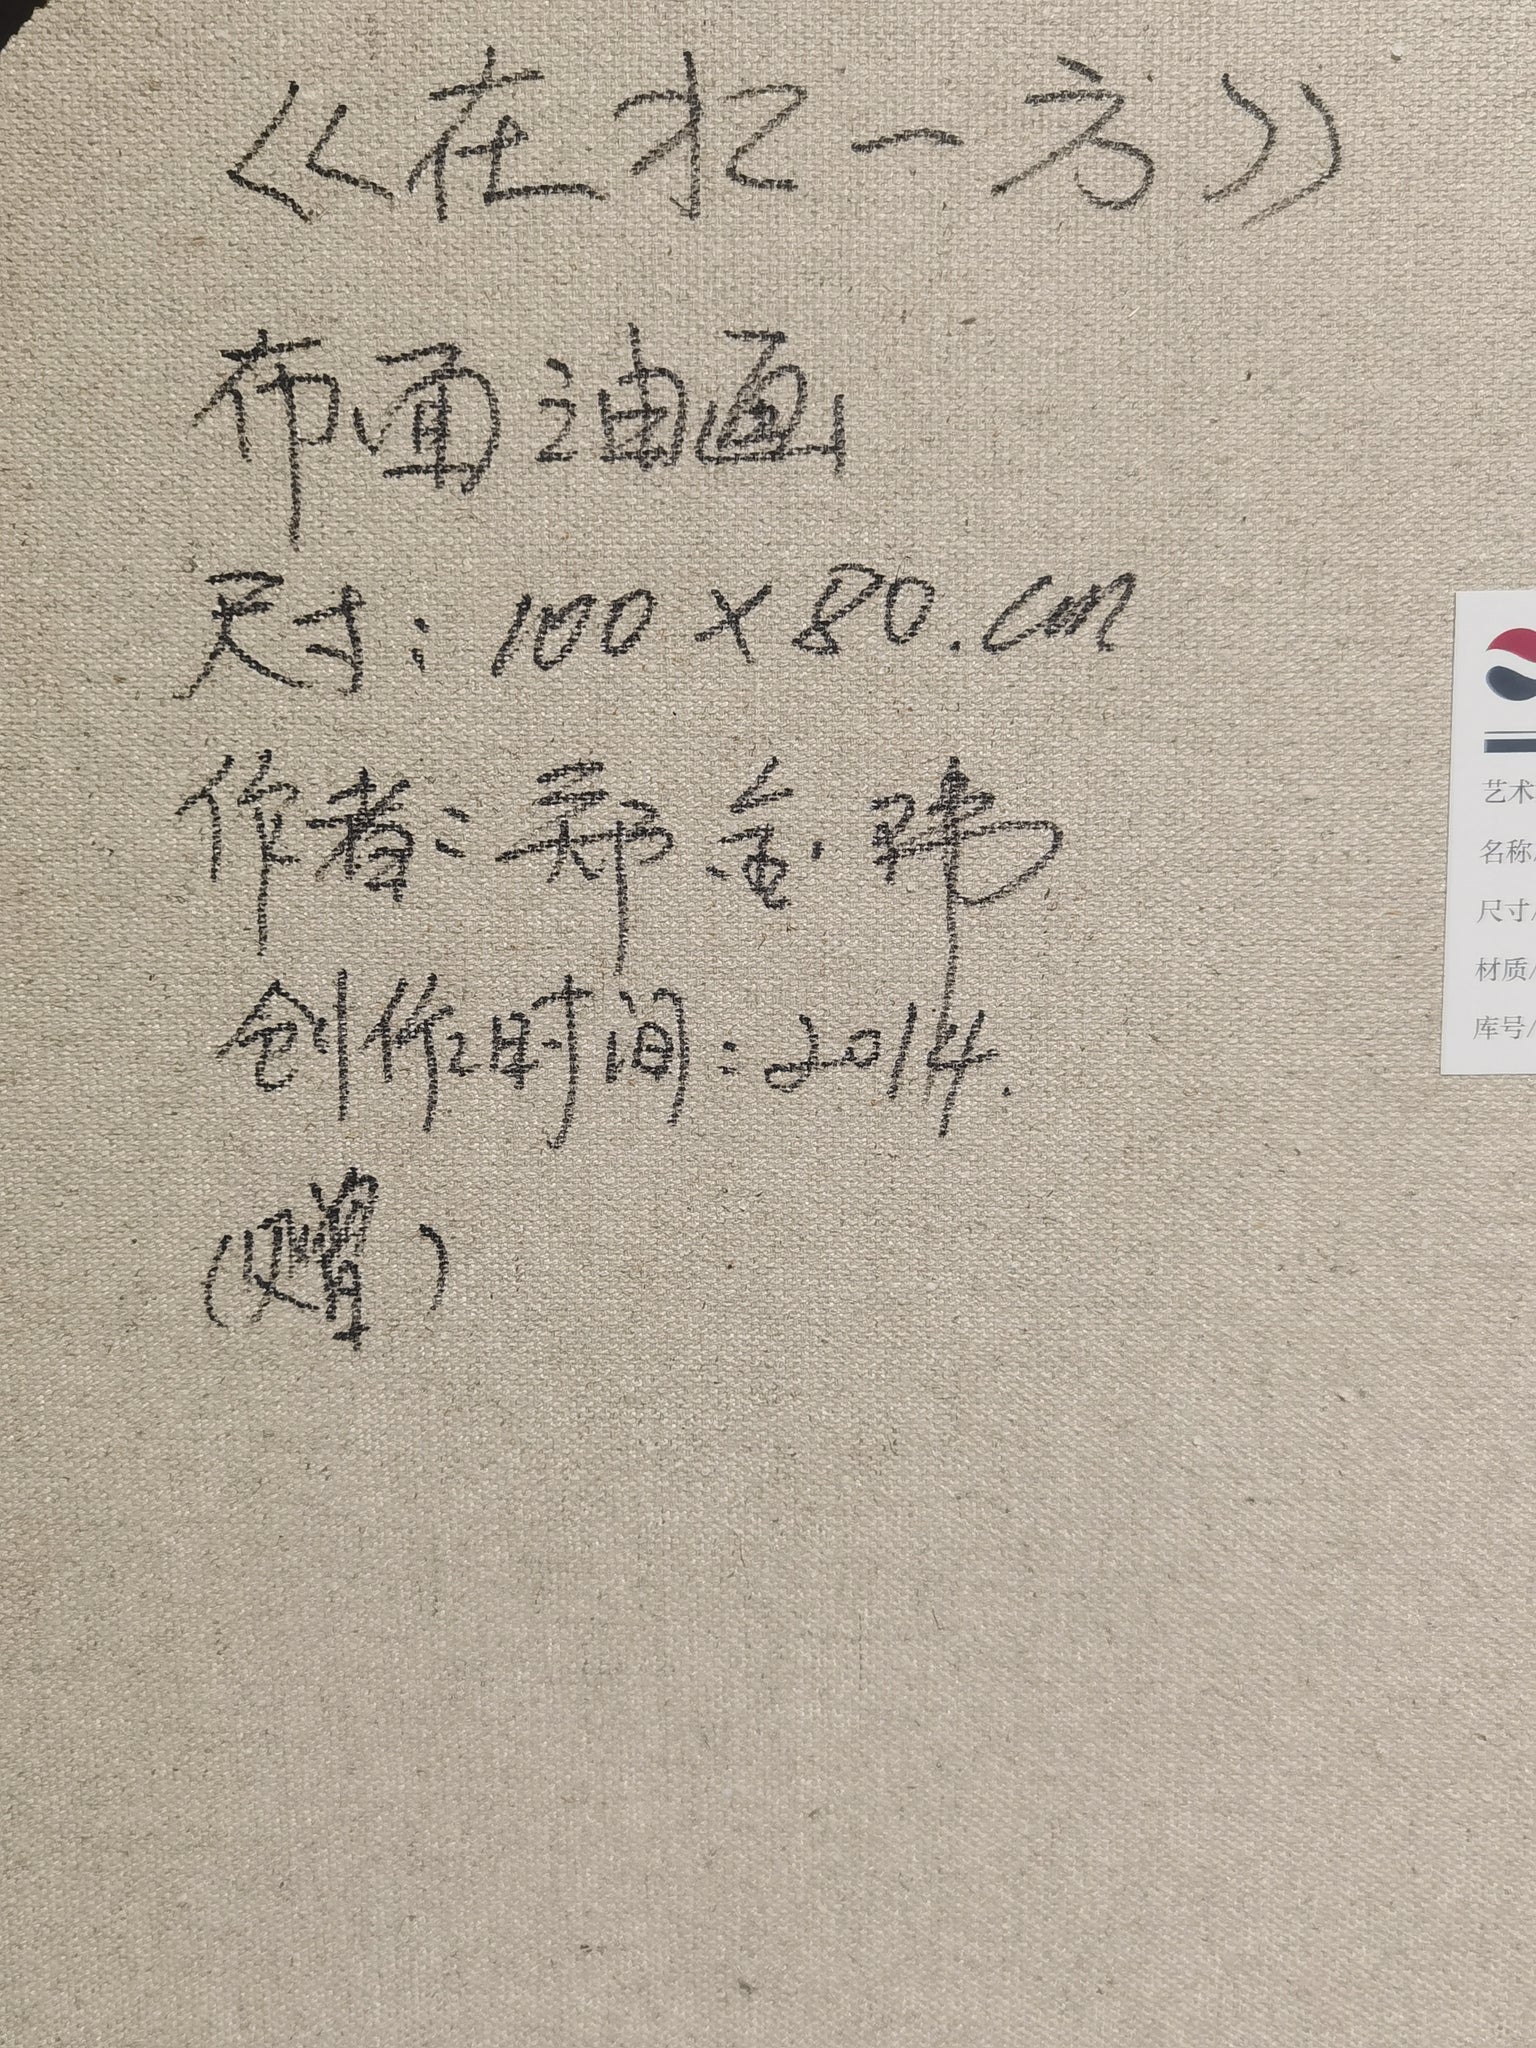 《在水一方》
布面油画
尺寸：100×80.cm
作者：郑金玮
创作时间：2014.
（赠）
艺术
名称/
尺寸/
材质/
库号/